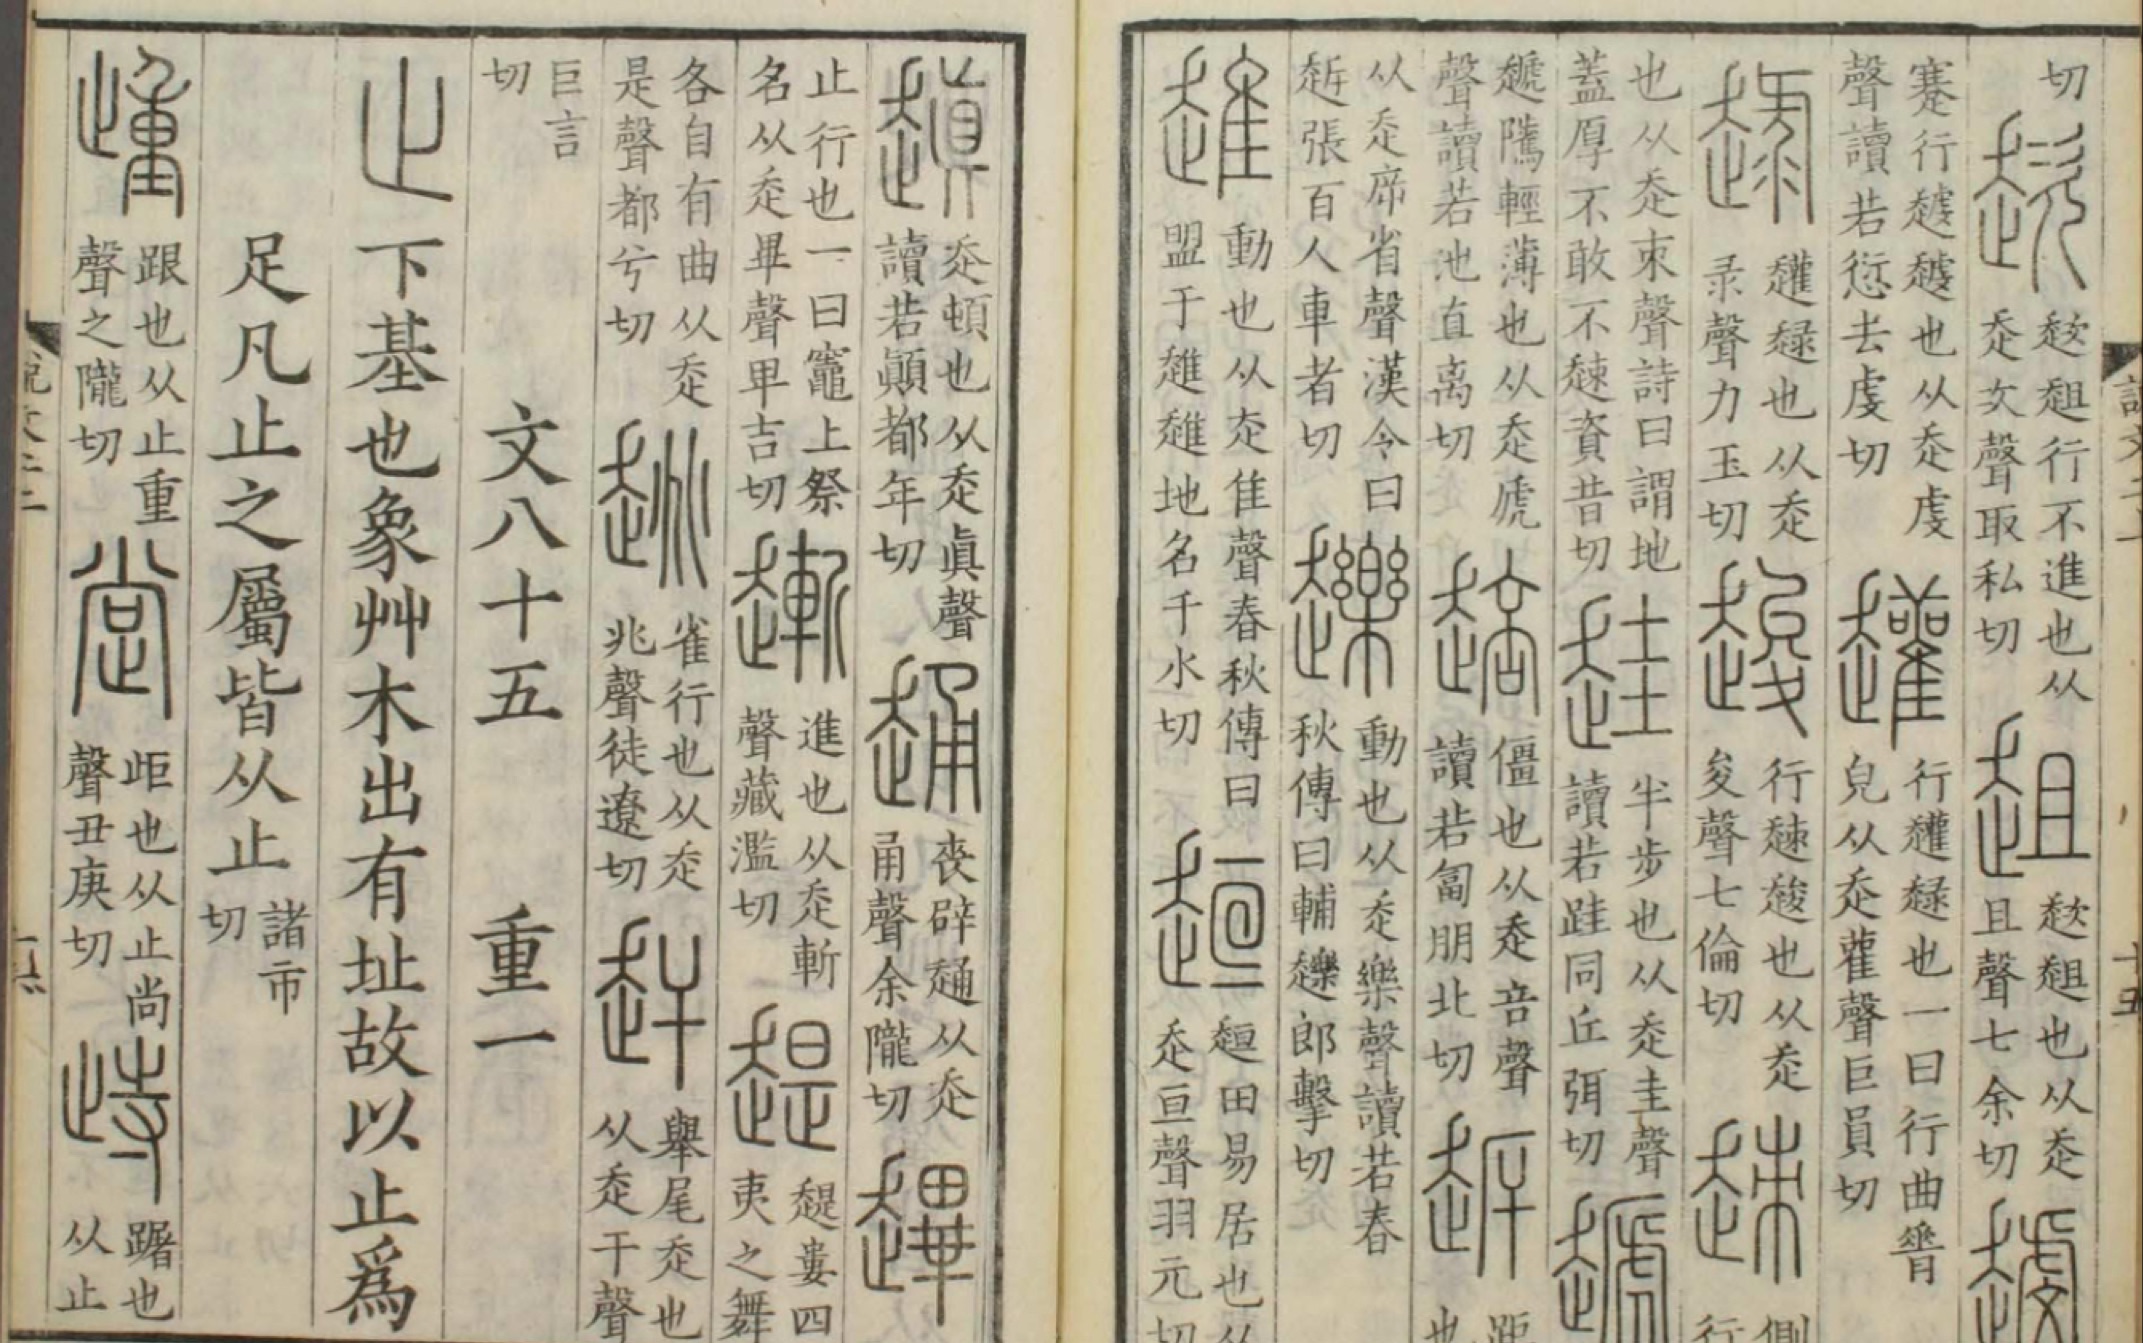 切 趑 趑趄行不進也从走次聲取私切 趄 趑趄也从走且聲七余切 𧽐
蹇行𧽐𧽐也从走虔聲讀若愆去虔切 𧾯 行𧾯趢也一曰行曲脊皃从走雚聲巨員切
趢 𧾯趢也从走录聲力玉切 䞭 行趚䞭也从走夋聲七倫切 趚 側行
也从走朿聲詩曰謂地蓋厚不敢不趚資昔切 䞨 半步也从走圭聲讀若跬同丘弭切 䞾
䞾䧢輕薄也从走虒聲讀若池直离切 䞳 僵也从走咅聲讀若匐朋北切 距也
从走席省聲漢令曰張百人車者切 䟏 動也从走樂聲讀若春秋傳曰輔䟏郎擊切
趡 動也从走隹聲春秋傳曰盟于趡趡地名千水切 𧻚 𧻚田易居也从走亘聲羽元切
𧽍 走頓也从走眞聲讀若顚都年切 𧻹 喪辟𧻹从走甬聲余隴切 䟆
止行也一曰竈上祭名从走畢聲卑吉切 䟅 進也从走斬聲藏濫切 趧 趧婁四夷之舞
各自有曲从走是聲都兮切 趒 雀行也从走兆聲徒遼切 赶 舉尾走也从走干聲
巨言切 文八十五 重一
止 下基也象艸木出有址故以止爲
足凡止之屬皆从止 諸市切
歱 跟也从止重聲之隴切 㙶 歫也从止尚聲丑庚切 峙 踞也从止